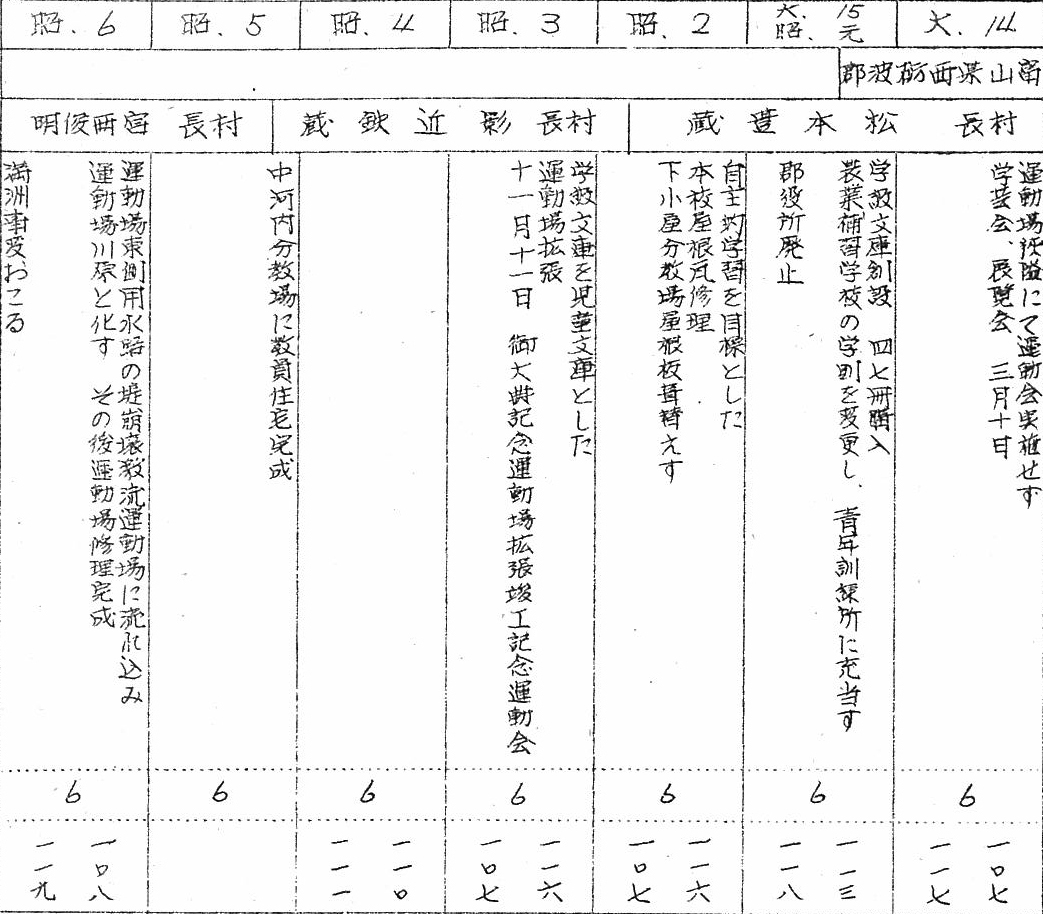 大、14
大、15
昭、元
昭、2
昭、3
昭、4
昭、5
昭、6
富山県西砺波郡
村長 松本豊蔵
村長 影近欽蔵
村長 宮西俊明
運動場狭隘にて運動会実施せず
学芸会、展覧会 三月十日
学級文庫創設 四七冊購入
農業補習学校の学則を変更し、青年訓練所に充当す
郡役所廃止
自主的学習を目標とした
本校屋根瓦修理
下小屋分教場屋根板葺替えす
学級文庫を児童文庫とした
運動場拡張
十一月十一日 御大典記念運動場拡張竣工記念運動会
中河内分教場に教員住宅完成
運動場東側用水路の堤崩壊激流運動場に流れ込み
運動場川原と化す その後運動場修理完成
満洲事変おこる
6
6
6
6
6
6
6
一〇七
一一七
一一三
一一八
一一六
一〇七
一一六
一〇七
一一〇
一一一
一〇八
一一九